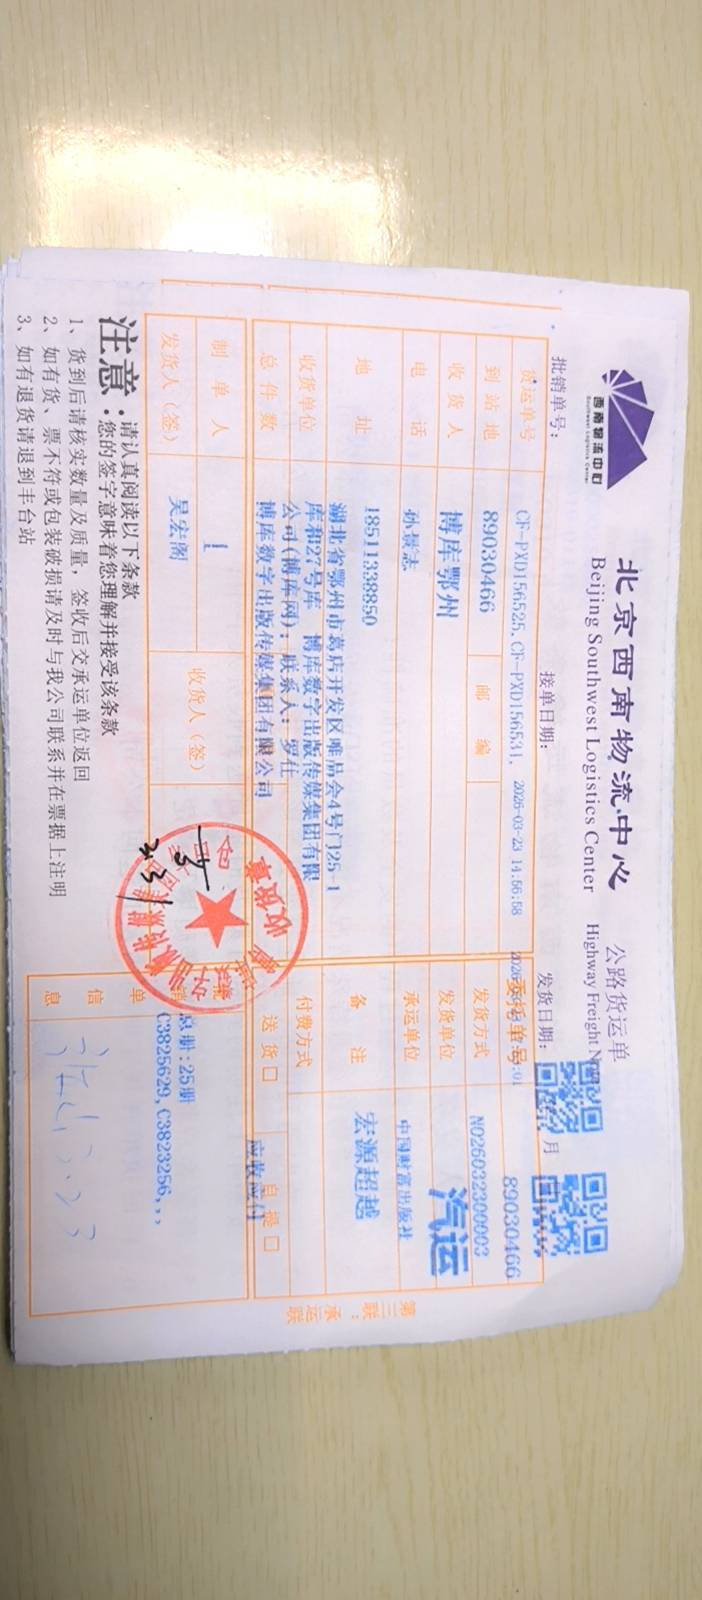 西南物流中心
Southwest Logistics Center
北京西南物流中心 公路货运单
Beijing Southwest Logistics Center Highway Freight
批销单号：
接单日期：
发货日期： 月
货运单号 CF-PXD156525,CF-PXD156531, 2026-03-23 14:56:58
委托单号 89030466
到站地 89030466 邮编
发货方式 N026032300003
收货人 博库鄂州
发货单位 汽运
电话 孙景志
承运单位 中国财富出版社
地址 18511338850
备注 宏源超越
湖北省鄂州市葛店开发区唯品会4号门25-1
收货单位 库和27号库 博库数字出版传媒集团有限
付费方式
公司(博库网)；联系人：罗仕
总件数 博库数字出版传媒集团有限公司
送货□ 自提□
应收应付
制单人 1 收货人（签）
发货人（签） 吴宏阁
收货章
单信息
总册:25册
C3825629,C3823256,,,
第三联：承运联
注意：
请认真阅读以下条款
您的签字意味着您理解并接受该条款
1、货到后请核实数量及质量，签收后交承运单位返回
2、如有货、票不符或包装破损请及时与我公司联系并在票据上注明
3、如有退货请退到丰台站